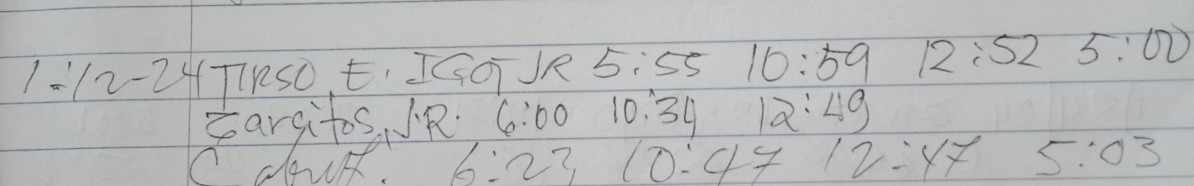 1-12-24 TIRSO, E. IGOT JR 5:55 10:59 12:52 5:00
Zarcitos, J.R. 6:00 10:34 12:49
C 6:23 10:47 12:47 5:03